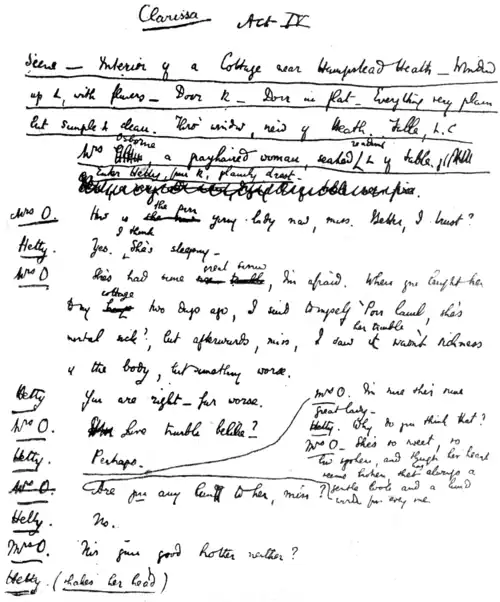 Clarissa Act IV
Scene — Interior of a Cottage near Hampstead Heath — Window
up L, with flowers — Door R — Door in flat — Everything very plain
but simple & clean. Thro' window, view of Heath. Table, L.C
Mrs Osborne, a grayhaired woman seated reading L of table.
Enter Hetty, R, plainly drest —
Mrs O. How is the poor young lady now, miss. Better, I trust?
Hetty. Yes. I think she's sleeping —
Mrs O She's had some great sorrow, I'm afraid. When you brought her
to my cottage two days ago, I said to myself 'Poor lamb, she's
mortal sick', but afterwards, miss, I saw her trouble wasn't sickness
of the body, but something worse.
Hetty You are right — far worse.
Mrs O. Love trouble belike?
Hetty. Perhaps.
Mrs O. I'm sure she's some
great lady —
Hetty. Why do you think that?
Mrs O — She's so sweet, so
low spoken, and though her heart
seems broken she has always a
gentle look and a kind
word for every one
Mrs O. Are you any kin to her, miss?
Hetty. No.
Mrs O. Nor your good brother neither?
Hetty. (shakes her head)